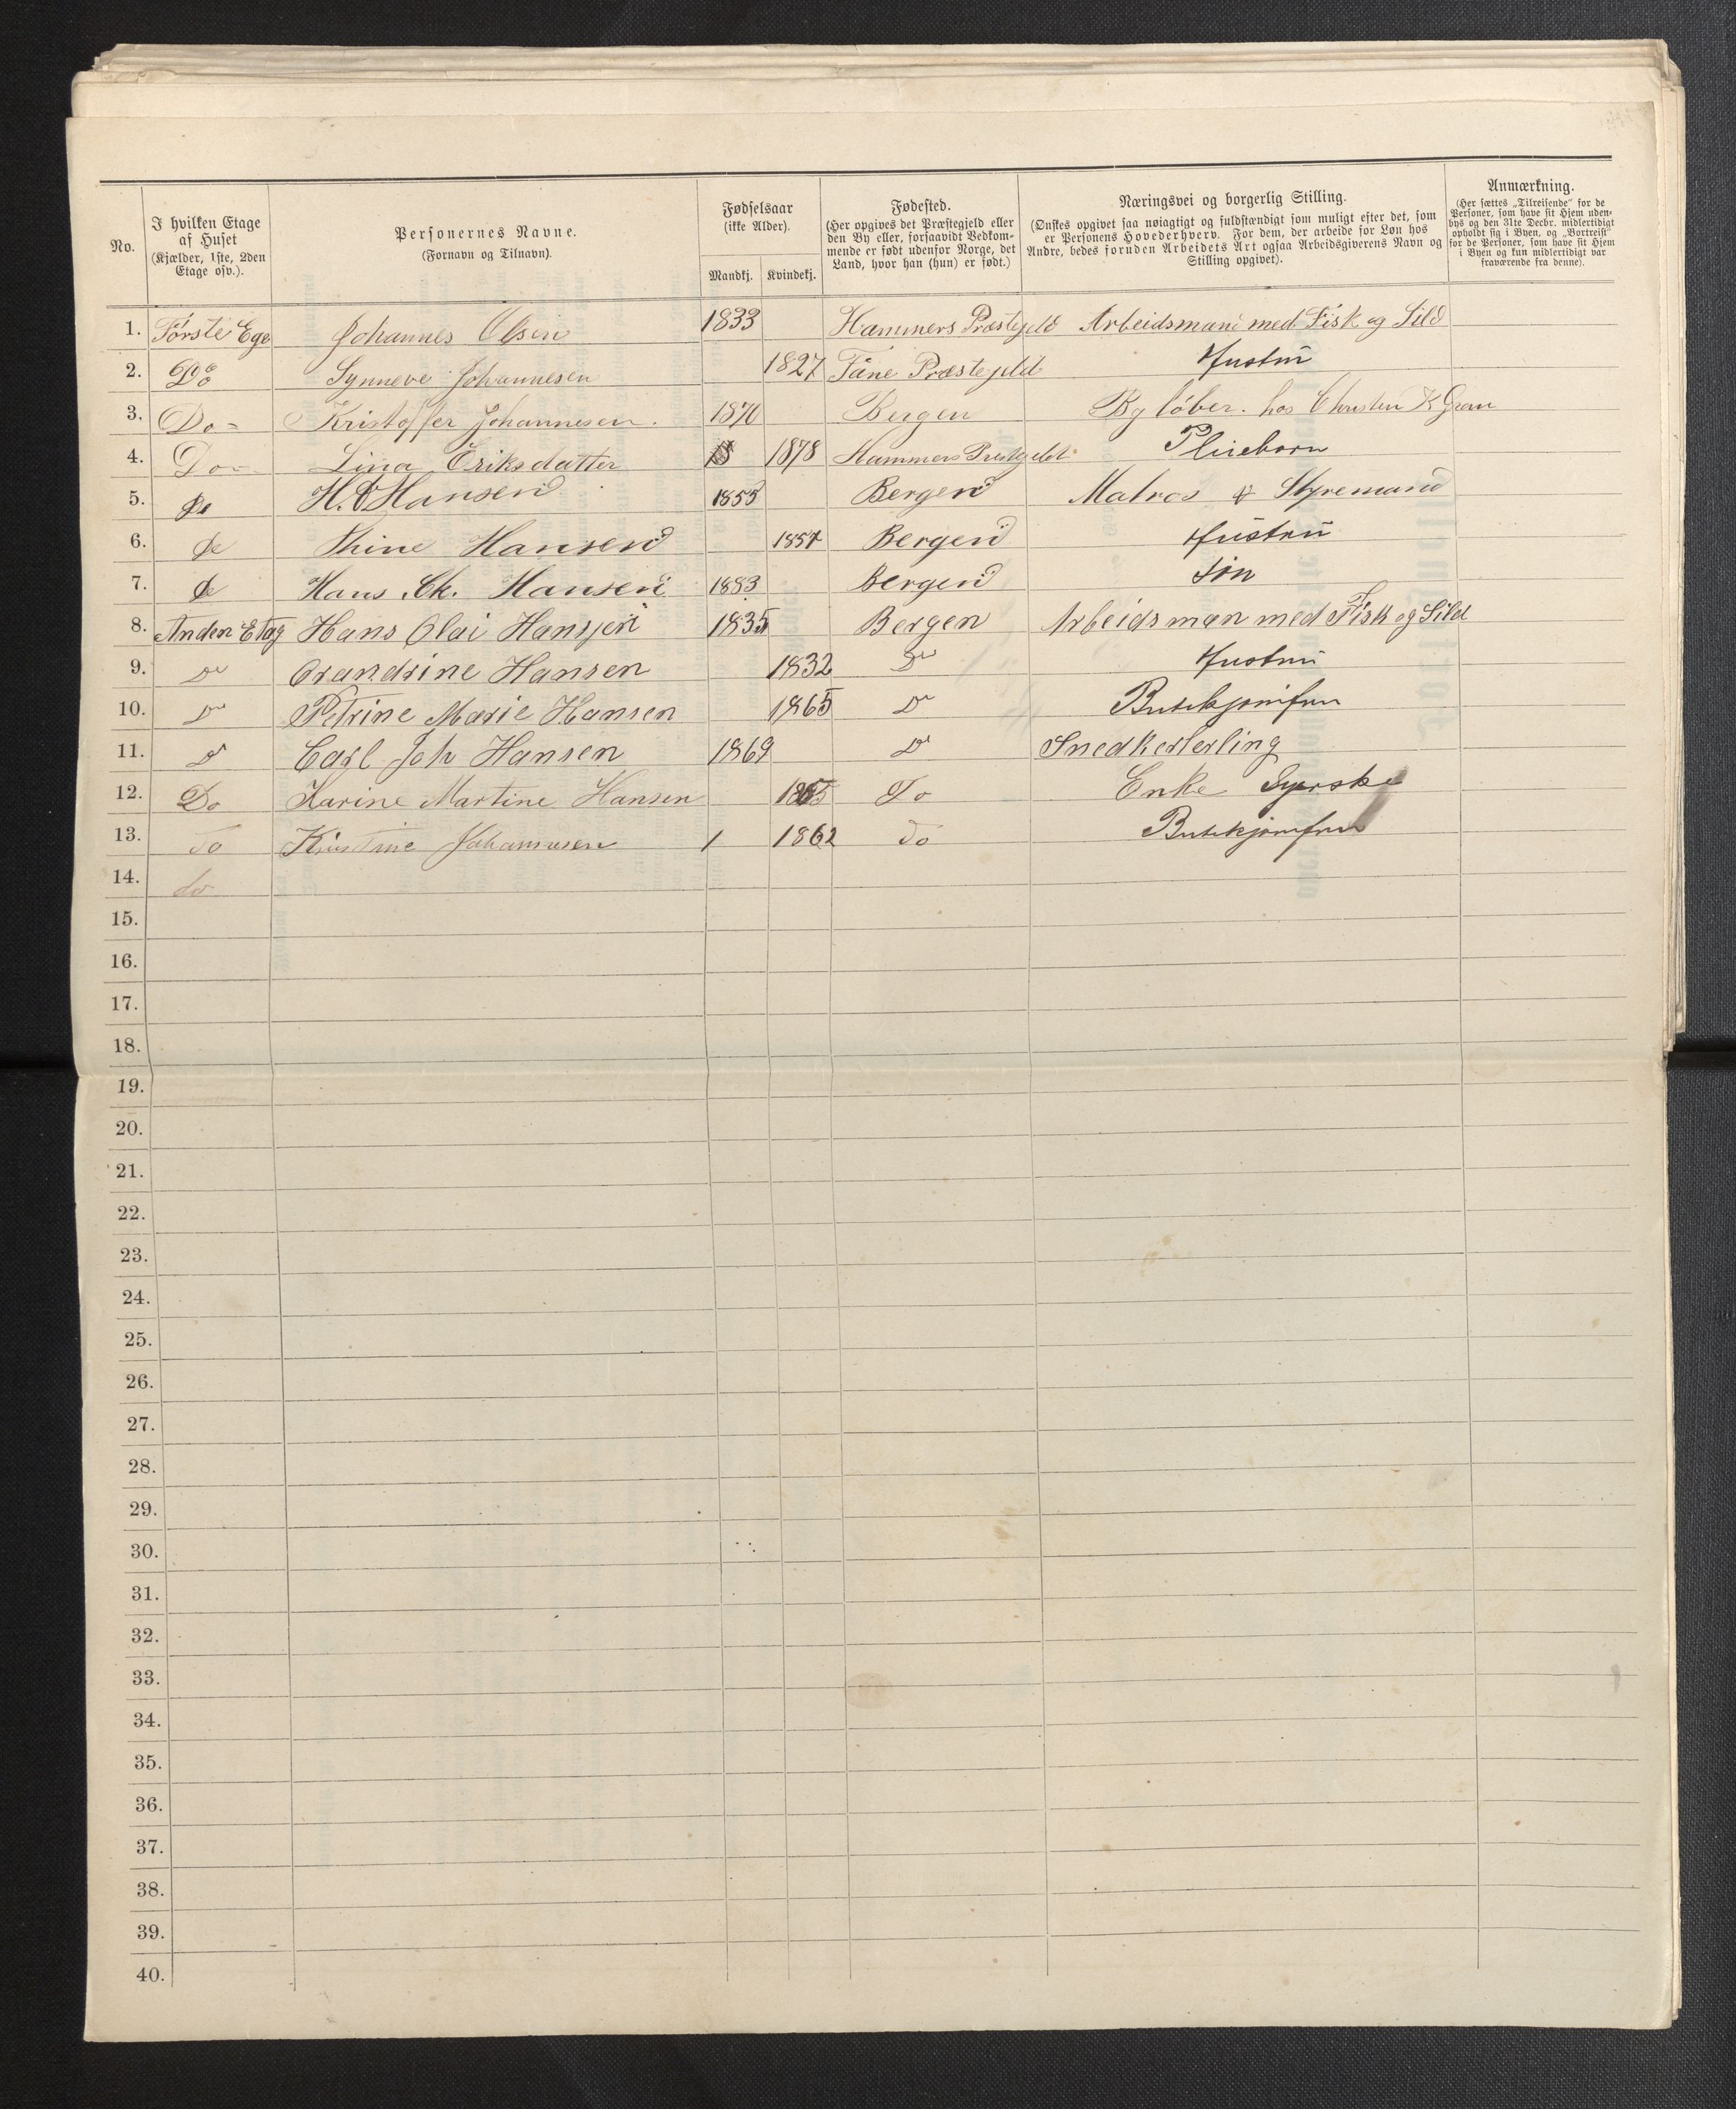 No.
I hvilken Etage af Huset (Kjælder, 1ste, 2den Etage osv.).
Personernes Navne. (Fornavn og Tilnavn).
Fødselsaar (ikke Alder). Mandkj. Kvindekj.
Fødested. (Her opgives det Præstegjeld eller den By eller, forsaavidt Vedkommende er født udenfor Norge, det Land, hvor han (hun) er født.)
Næringsvei og borgerlig Stilling. (Ønskes opgivet saa nøiagtigt og fuldstændigt som muligt efter det, som er Personens Hovederhverv. For dem, der arbeide for Løn hos Andre, bedes foruden Arbeidets Art ogsaa Arbeidsgiverens Navn og Stilling opgivet).
Anmærkning. (Her sættes „Tilreisende" for de Personer, som have sit Hjem udenbys og den 31te Decbr. midlertidigt opholdt sig i Byen, og „Bortreist" for de Personer, som have sit Hjem i Byen og kun midlertidigt var fraværende fra denne).
1. Første Ege Johannes Olsen 1833 Hammers Præstegjeld Arbeidsmand med Fisk og Sild
2. Do Synneve Johannesen 1827 Fane Præstegjeld Hustru
3. Do Kristoffer Johannesen. 1870 Bergen Byløber. hos Christen K Gran
4. Do Lina Eriksdatter 1878 Hammers Prestegjeld Pleieborn
5. Do H. Hansen 1855 Bergen Matros & Styremand
6. Do Thine Hansen 1857 Bergen Hustru
7. Do Hans Ch. Hansen 1883 Bergen Søn
8. Anden Etag Hans Olai Hansen 1835 Bergen Arbeidsman med Fisk og Sild
9. Do Orandrine Hansen 1832 Do Hustru
10. Do Petrine Marie Hansen 1865 Do Butikjomfru
11. Do Carl Joh Hansen 1869 Do Snedkerlerling
12. Do Karine Martine Hansen 1855 Do Enke Syerske
13. Do Kristine Johannesen 1 1862 do Butikjomfru
14. do
15.
16.
17.
18.
19.
20.
21.
22.
23.
24.
25.
26.
27.
28.
29.
30.
31.
32.
33.
34.
35.
36.
37.
38.
39.
40.